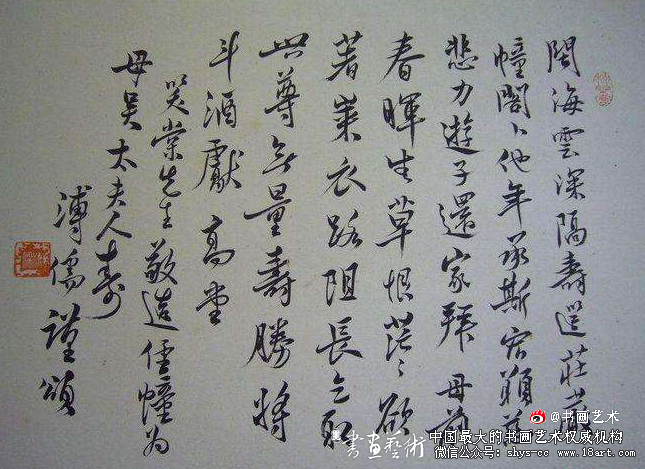 閩海雲深隔壽筵莊嚴
幢閣卜他年承斯宏願慈
悲力遊子還家拜母前
春暉生草恨茫〻欲
著萊衣路阻長乞取
世尊無量壽勝將
斗酒獻高堂
笑棠先生敬造經幢為
母吳太夫人壽
溥儒謹頌
@书画艺术
書畫藝術
中国最大的书画艺术权威机构
微信公众号: shys-cc www.18art.com